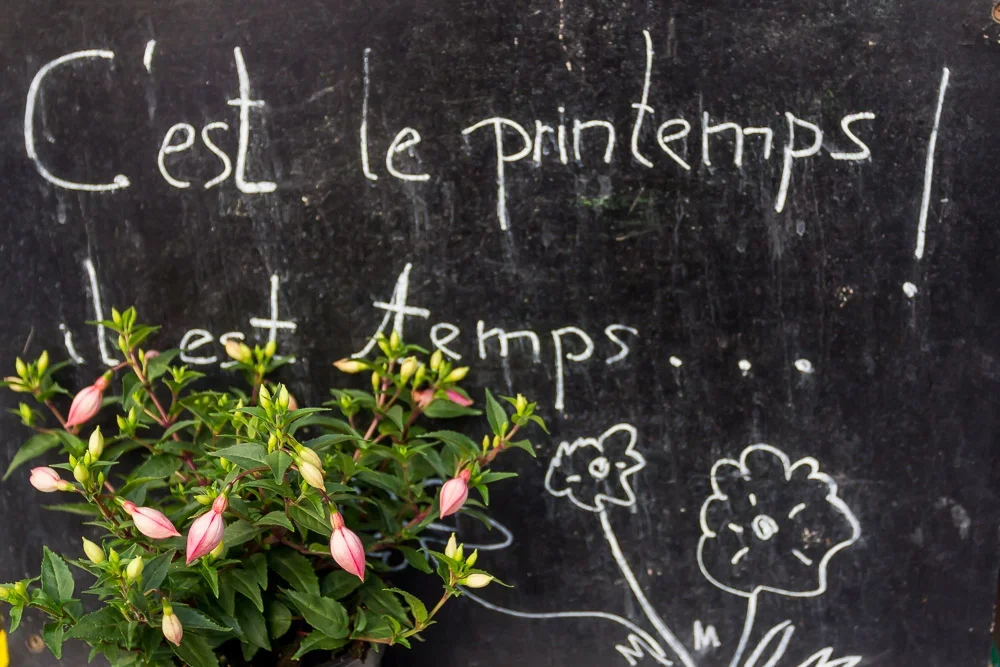 C'est le printemps !
il est temps ...